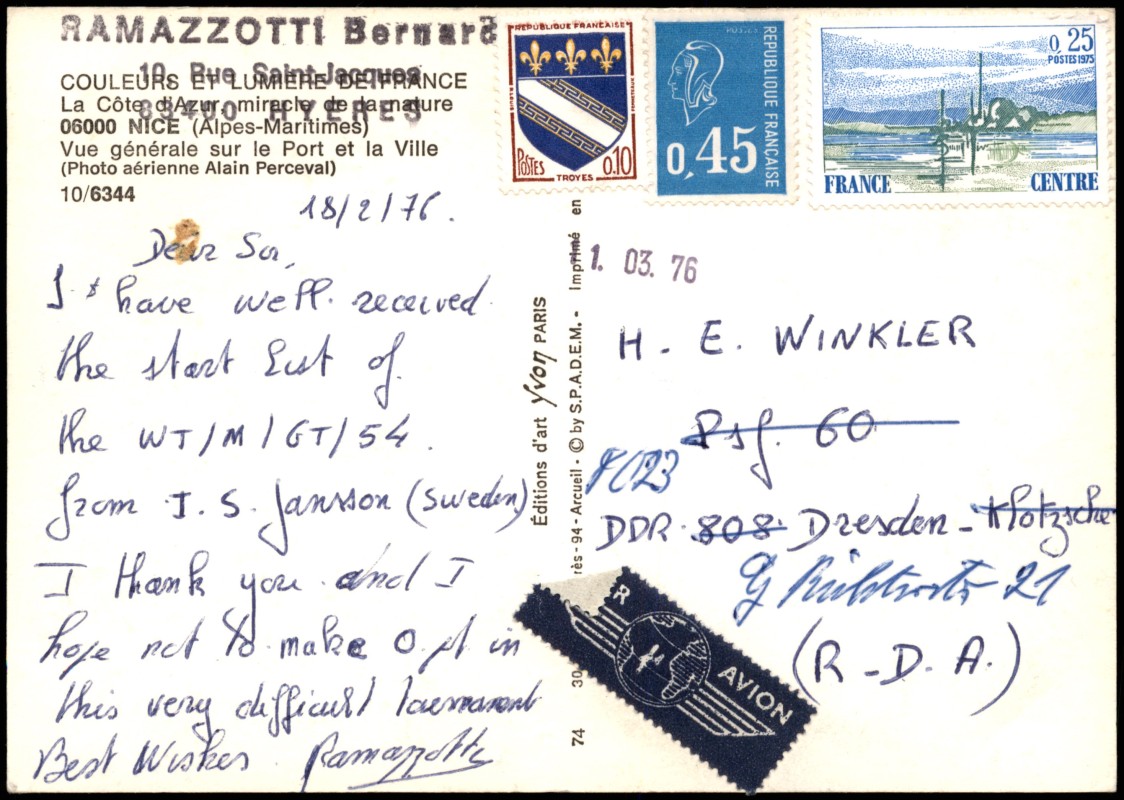 RAMAZZOTTI Bernard
10, Rue Saint-Jacques
83400 HYERES
COULEURS ET LUMIÈRE DE FRANCE
La Côte d'Azur, miracle de la nature
06000 NICE (Alpes-Maritimes)
Vue générale sur le Port et la Ville
(Photo aérienne Alain Perceval)
10/6344
18/2/76.
Dear Sir,
I have well received
the start List of
the WT/M/GT/54.
from J. S. Jansson (Sweden)
I thank you and I
hope not to make 0 pt in
this very difficult tournament
Best Wishes Ramazzotti
REPUBLIQUE FRANÇAISE
POSTES 0,10
TROYES
POSTES
REPUBLIQUE FRANÇAISE
0,45
0,25
POSTES 1975
FRANCE CENTRE
1. 03. 76
Éditions d'art Yvon PARIS
74 30 rès - 94 - Arcueil - © by S.P.A.D.E.M. - Imprimé en
H. E. WINKLER
Psf. 60
8023
DDR 808 Dresden - Klotzsche
21
(R-D.A.)
R AVION